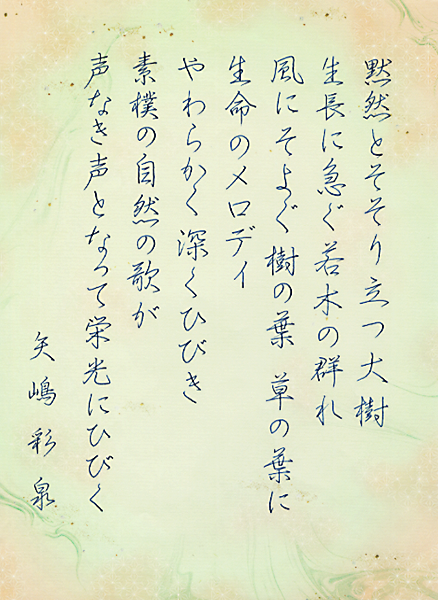 黙然とそそり立つ大樹
生長に急ぐ若木の群れ
風にそよぐ樹の葉 草の葉に
生命のメロディ
やわらかく深くひびき
素樸の自然の歌が
声なき声となって栄光にひびく
矢嶋彩泉